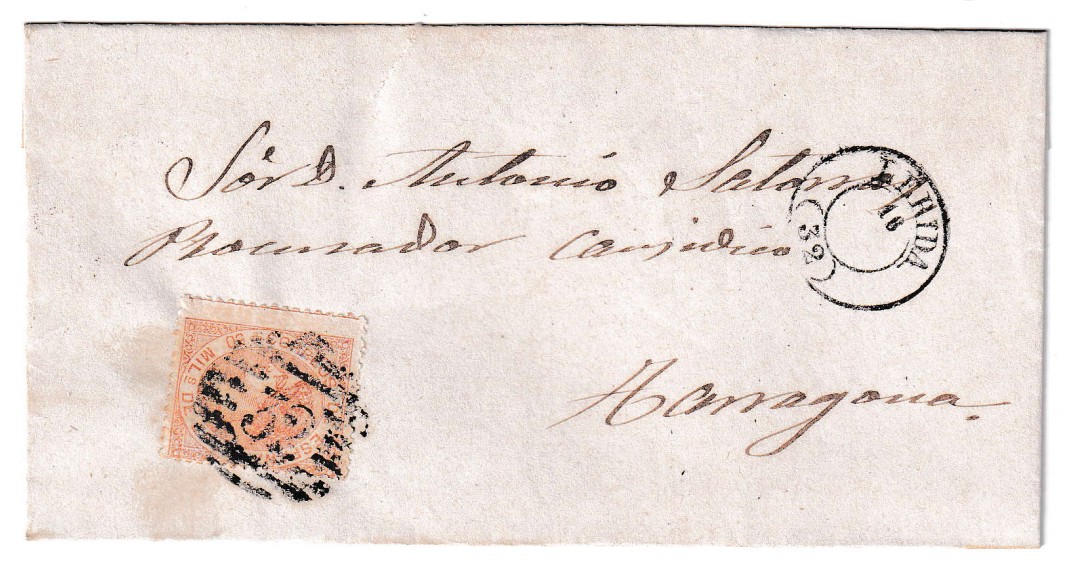 Sôr D. Antonio Satorr
Procurador Causidico
Tarragona.
LERIDA
16
(32)
MILS DE
ES